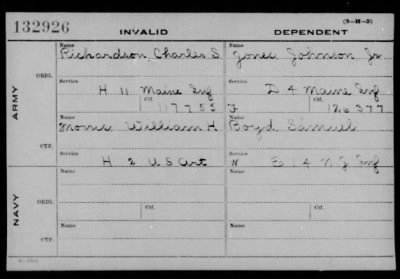 132926 INVALID DEPENDENT (3-H-3)
Name Richardson, Charles S. Name Jones Johnson Jr.
ARMY
ORIG.
Service H 11 Maine Inf Service D 4 Maine Inf
Ctf. 117755 Ctf. 126377
Name Morris William H. Name Boyd Samuel
CTF.
Service H 2 U S Art Service E 14 N J Inf
NAVY
Name Name
ORIG.
Service Ctf. Service Ctf.
Name Name
CTF.
Service Service